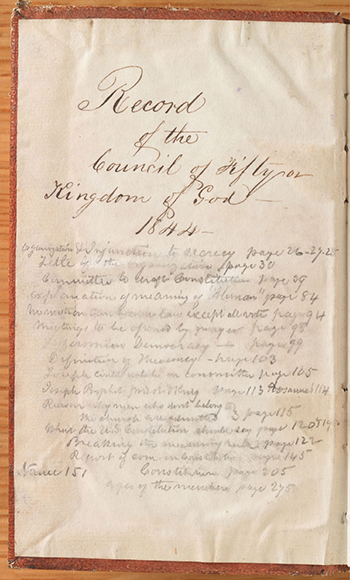 Record
of the
Council of Fifty or
Kingdom of God
1844—
Organization & Injunction to secrecy page 26-27-28
Title of the organization page 30
Committee to draft Constitution page 39
Explanation of meaning of "Human" page 84
No motion can become law except all vote page 94
Meetings to be opened by prayer page 98
Democracy page 99
Definition of Theocracy page 103
Joseph committee page 105
Joseph Prophet Priest & King page 113 Hosannah 114
Reason why men who don't belong
to the church are admitted page 115
What the U.S. Constitution should say page
Breaking the rule page 122
Report of com. on Constitution page 145
Name 151 Constitution page 205
ages of the members page 275